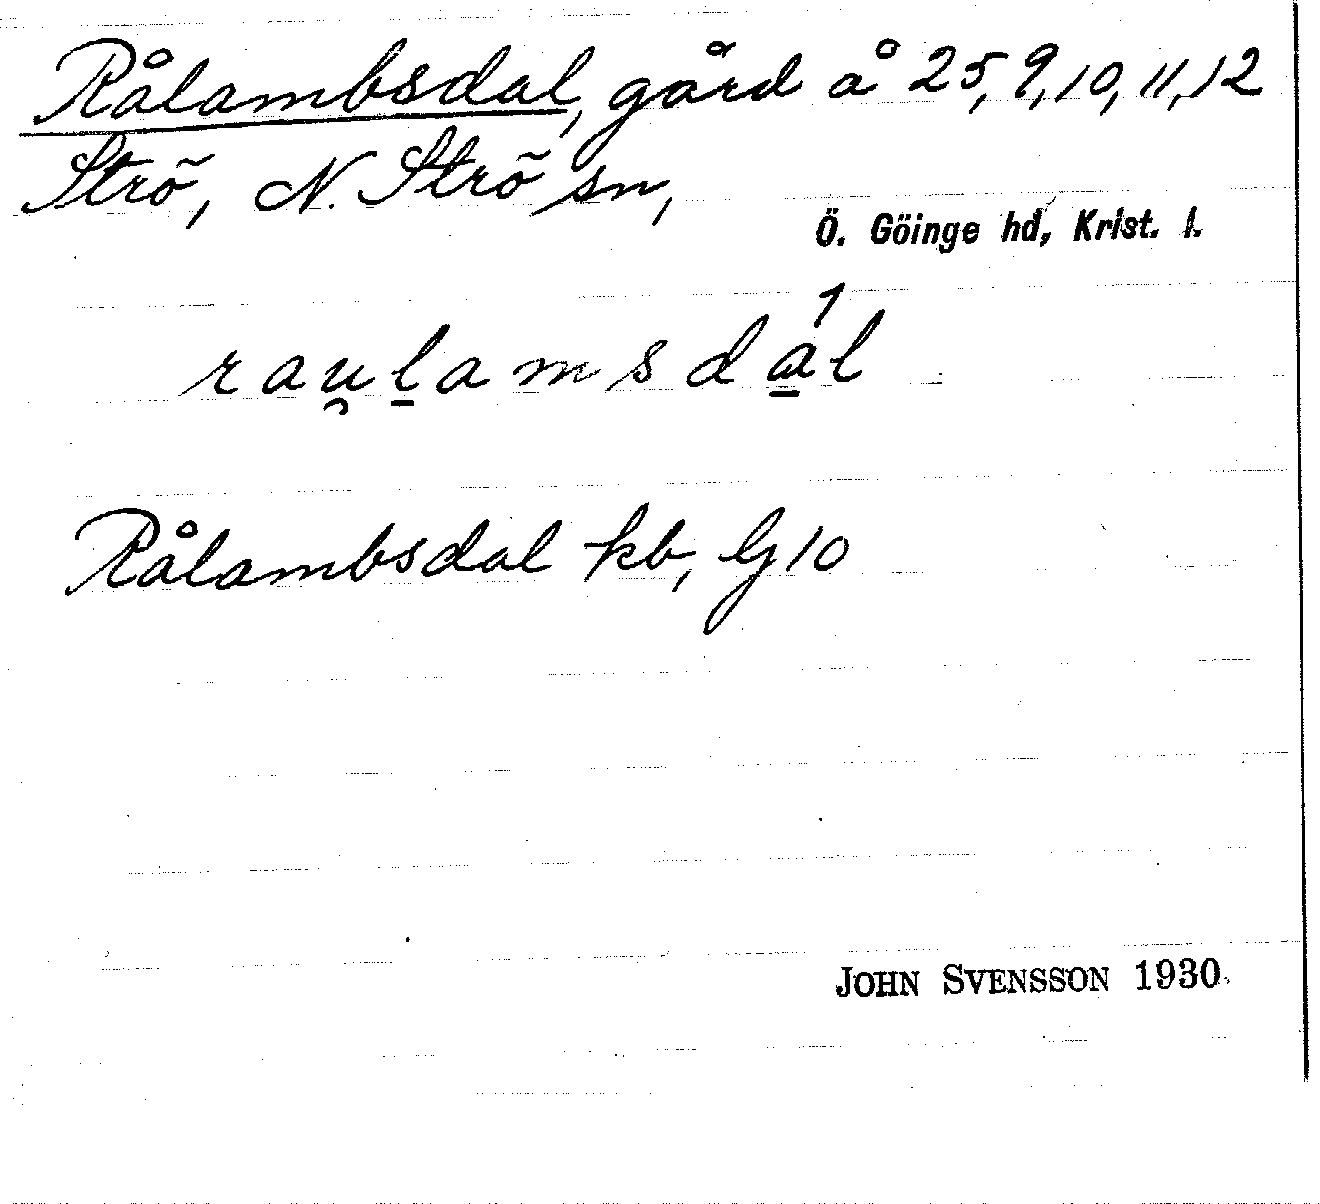 Rålambsdal, gård å 25, 9, 10, 11, 12
Strö, N. Strö sn,
Ö. Göinge hd, Krist. l.
rau̯l̠amsdá̠l
Rålambsdal kb, Gj 10
JOHN SVENSSON 1930.